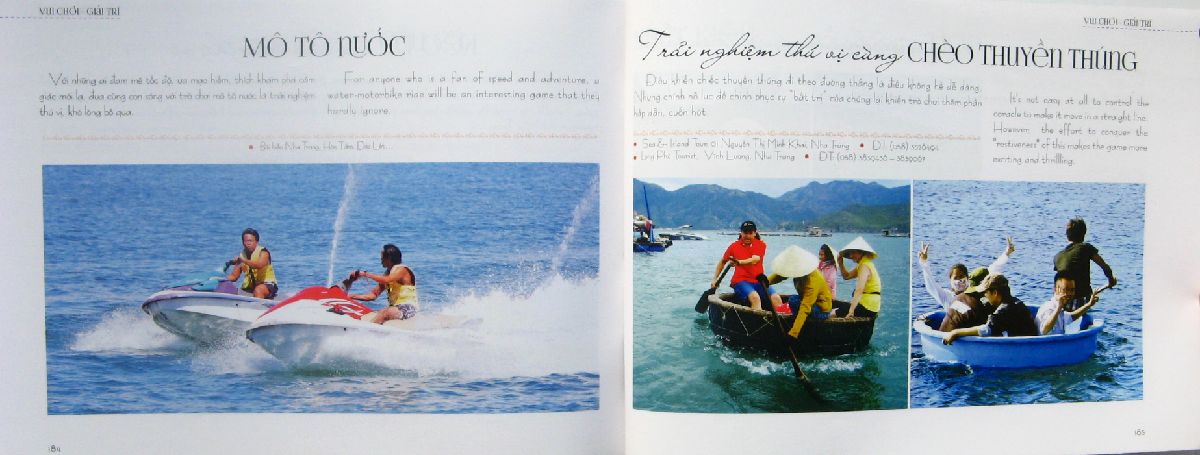 VUI CHƠI - GIẢI TRÍ
MÔ TÔ NƯỚC
Với những ai đam mê tốc độ, ưa mạo hiểm, thích khám phá cảm
giác mới lạ, đùa cùng con sóng với trò chơi mô tô nước là trải nghiệm
thú vị, khó lòng bỏ qua.
For anyone who is a fan of speed and adventure, a
water-motorbike ride will be an interesting game that they
hardly ignore.
Bãi biển Nha Trang, Hòn Tằm, Dốc Lết...
184
VUI CHƠI - GIẢI TRÍ
Trải nghiệm thú vị cùng CHÈO THUYỀN THÚNG
Điều khiển chiếc thuyền thúng đi theo đường thẳng là điều không hề dễ dàng.
Nhưng chính nỗ lực để chinh phục sự "bất trị" của chúng lại khiến trò chơi thêm phần
hấp dẫn, cuốn hút.
It's not easy at all to control the
coracle to make it move in a straight line.
However, the effort to conquer the
"restiveness" of this makes the game more
exciting and thrilling.
Sea & Island Tour: Nguyễn Thị Minh Khai, Nha Trang • ĐT: (058)
Long Phú Tourist, Vĩnh Lương, Nha Trang • ĐT: (058) 3839436 - 3839067
185